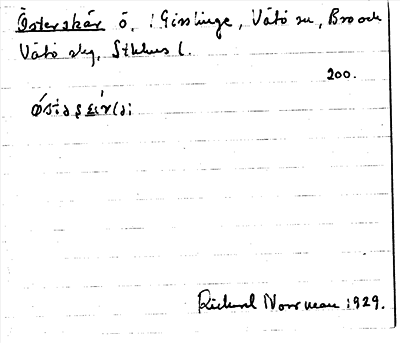 Österskär ö, i Gisslinge, Vätö sn, Bro och
Vätö skg, Sthlms l.
200.
Richard Norrman 1929.